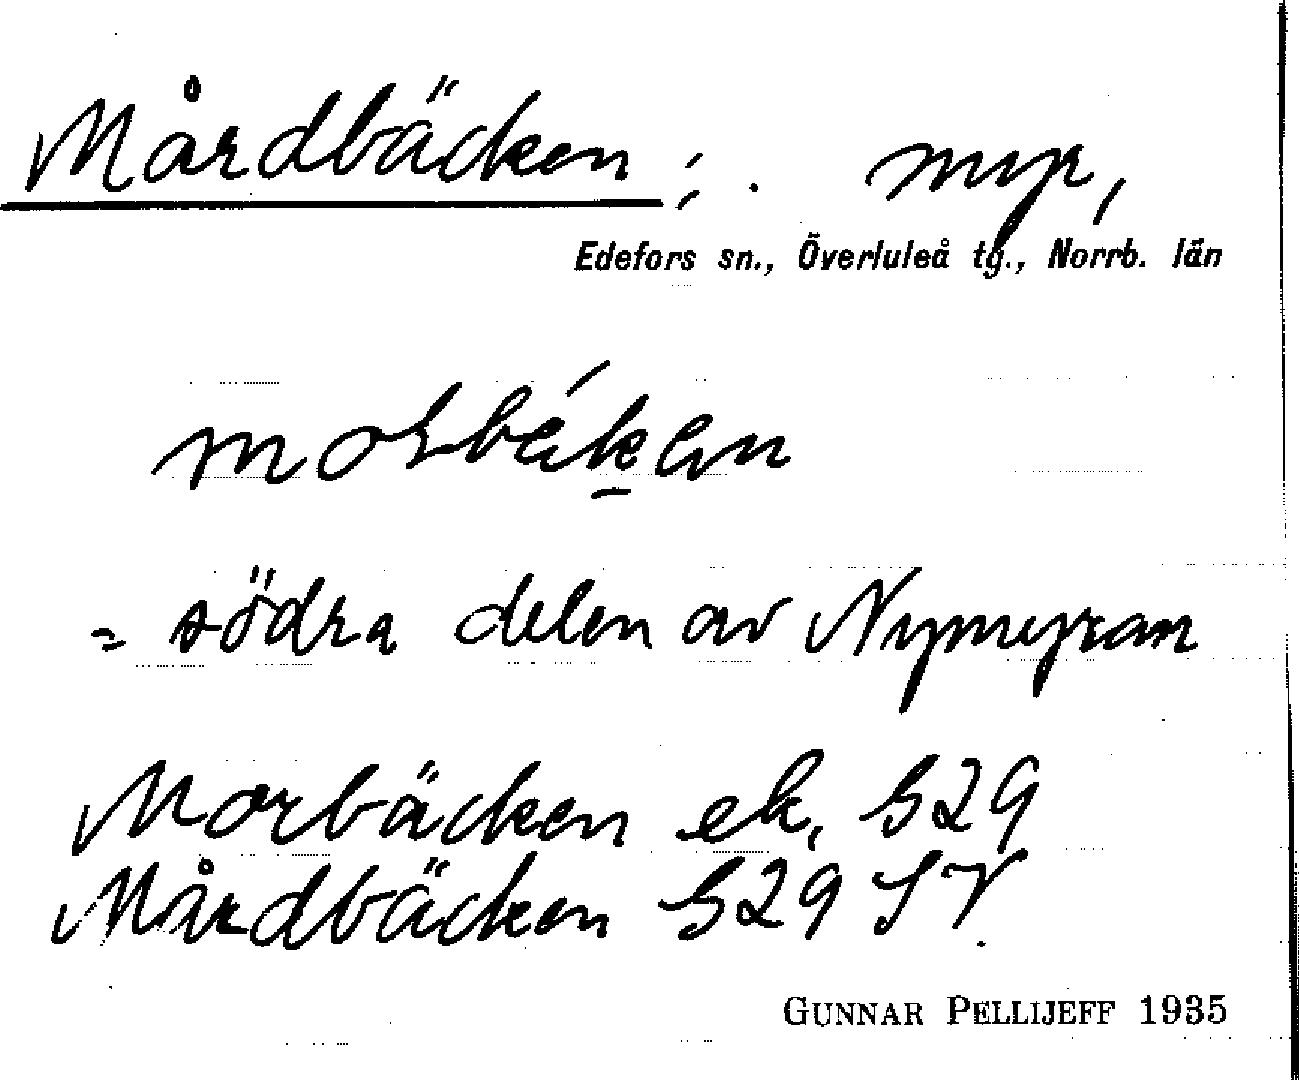 Mårdbäcken; . myr,
Edefors sn., Överluleå tg., Norrb. län
= södra delen av Nymyran
Morbäcken ek. S29
Mårdbäcken S29 SV.
GUNNAR PELLIJEFF 1935